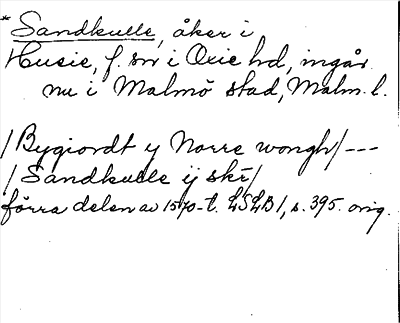 * Sandkulle, åker i
Husie, f. sn i Oxie hd, ingår
nu i Malmö stad, Malm. l.
/Bygiordt y Norre wongh/---
/Sandkulle ij skr̄/
förra delen av 1570-t. LSLB 1, s. 395. orig.